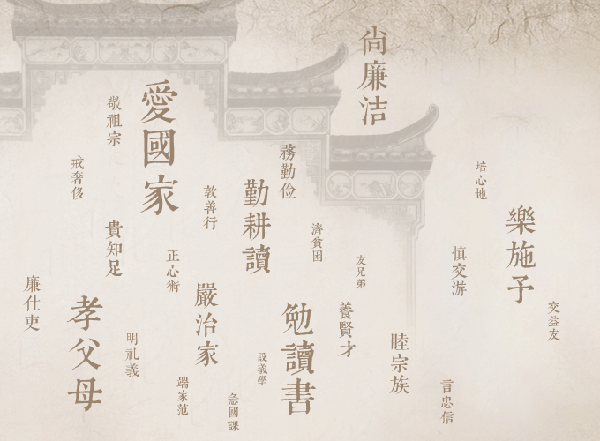 交益友
樂施予
培心地
慎交游
言忠信
睦宗族
尚廉洁
友兄弟
養賢才
濟貧困
勉讀書
務勤俭
設義學
勤耕讀
急國課
敦善行
嚴治家
端家范
正心術
愛國家
明礼義
敬祖宗
貴知足
孝父母
戒奢侈
廉仕吏